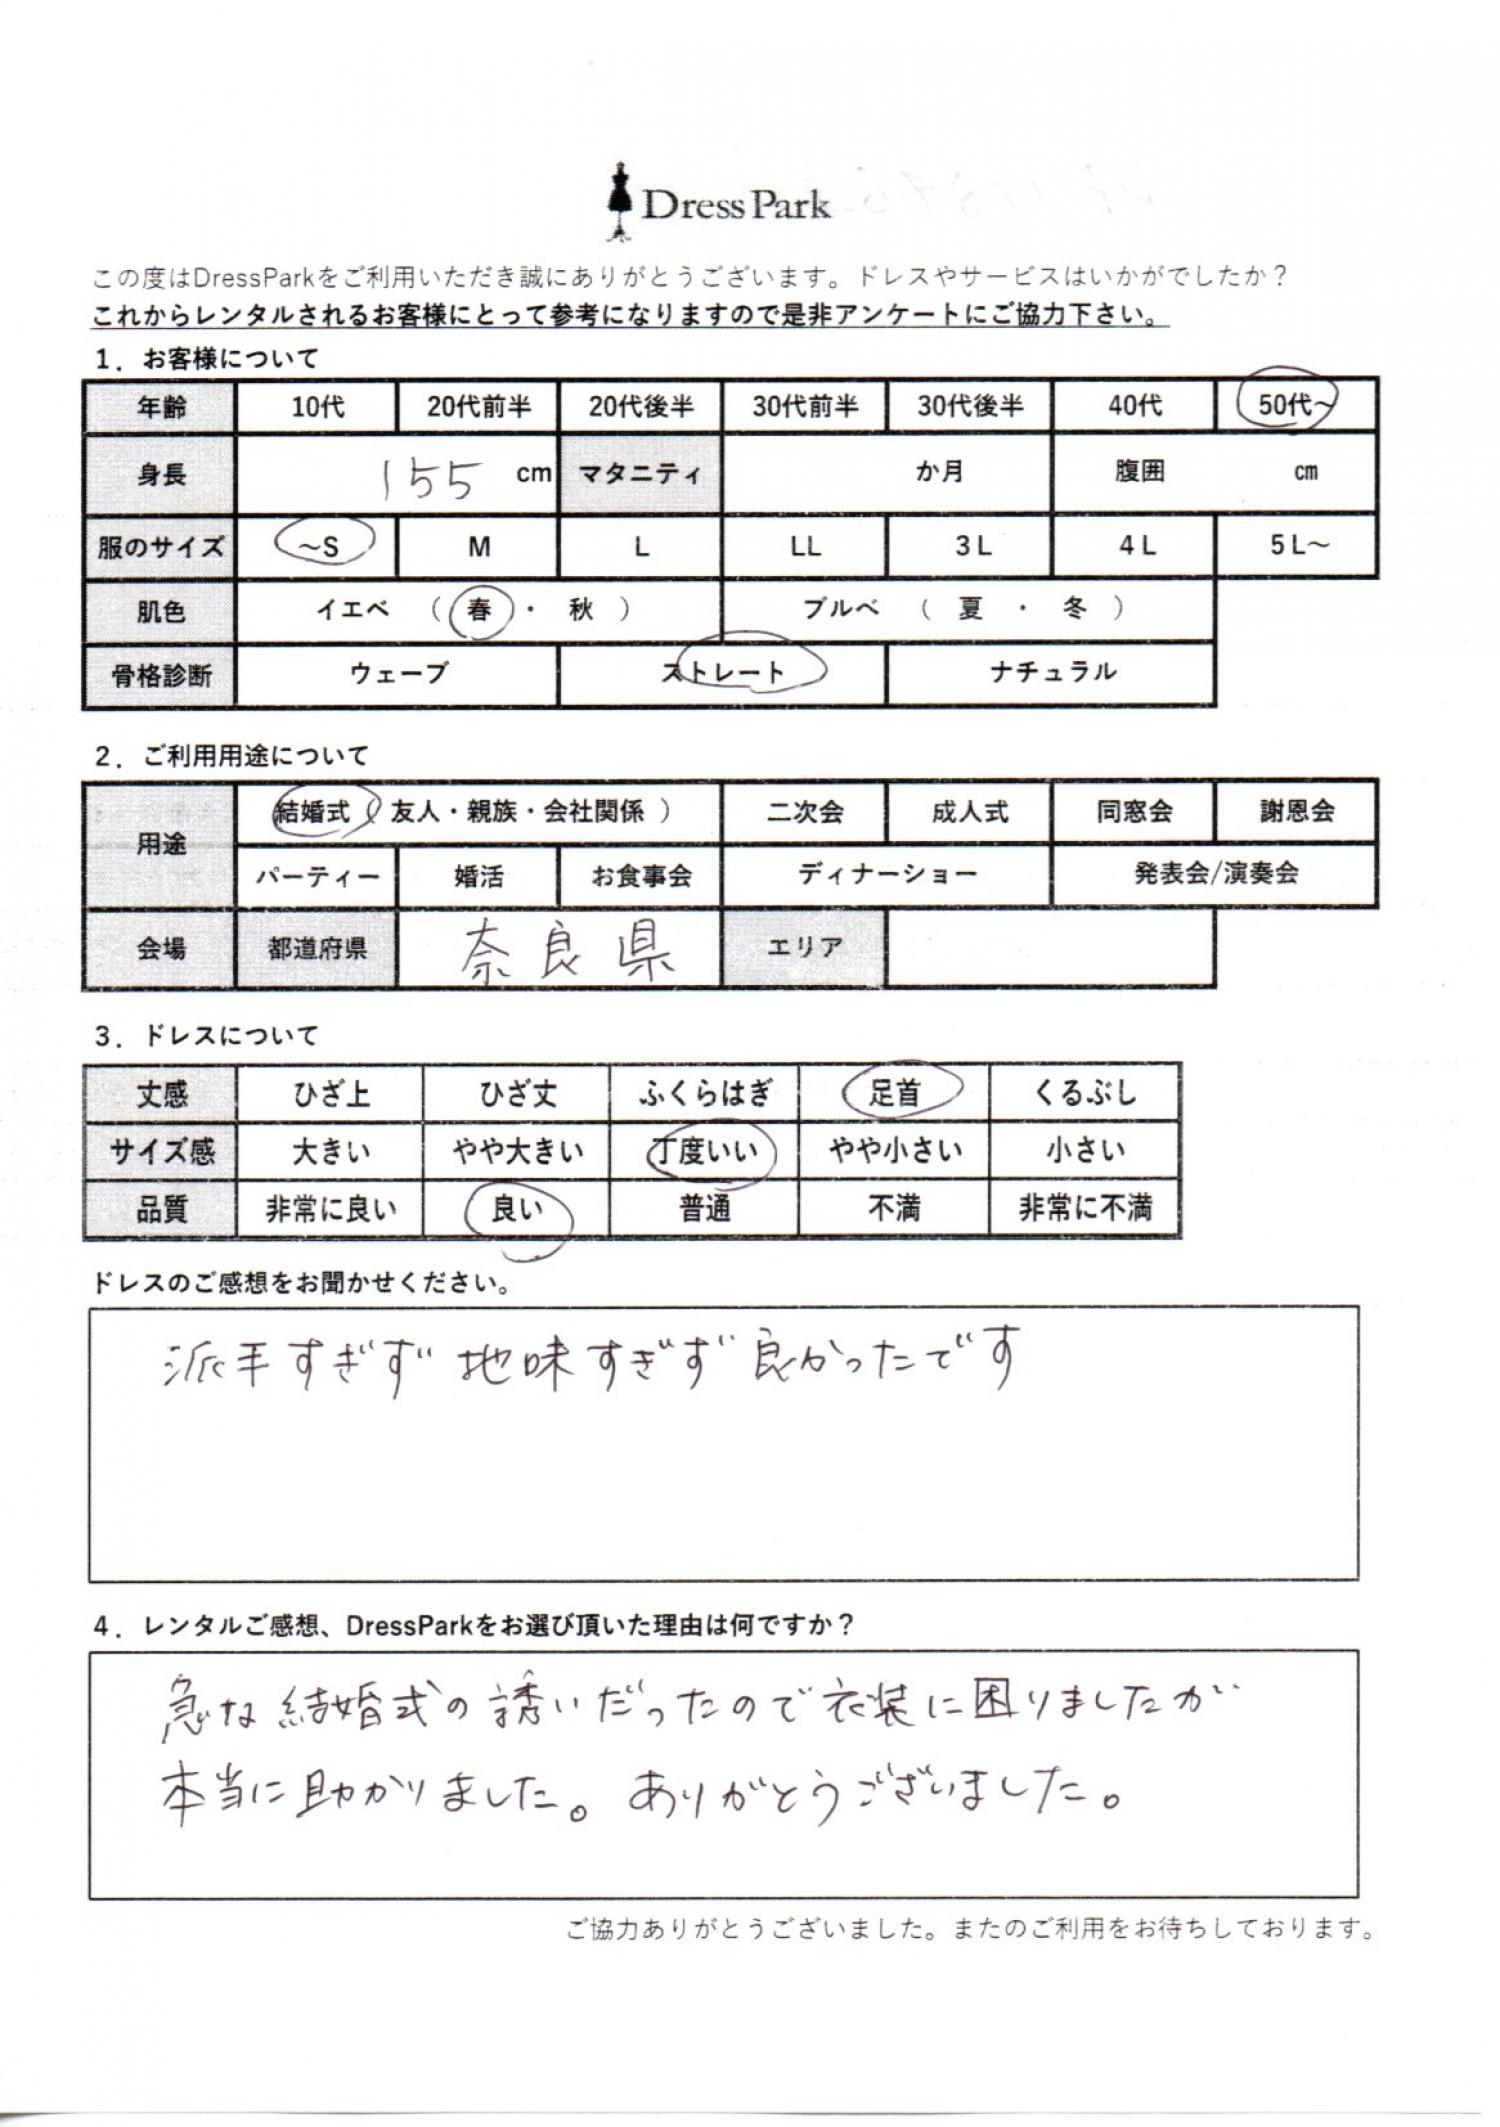 Dress Park
この度はDressParkをご利用いただき誠にありがとうございます。ドレスやサービスはいかがでしたか？
これからレンタルされるお客様にとって参考になりますので是非アンケートにご協力下さい。
1．お客様について
年齢 10代 20代前半 20代後半 30代前半 30代後半 40代 50代～
身長 155 cm マタニティ か月 腹囲 cm
服のサイズ ～S M L LL 3L 4L 5L～
肌色 イエベ （ 春 ・ 秋 ） ブルベ （ 夏 ・ 冬 ）
骨格診断 ウェーブ ストレート ナチュラル
2．ご利用用途について
用途 結婚式（ 友人・親族・会社関係 ） 二次会 成人式 同窓会 謝恩会
パーティー 婚活 お食事会 ディナーショー 発表会/演奏会
会場 都道府県 奈良県 エリア
3．ドレスについて
丈感 ひざ上 ひざ丈 ふくらはぎ 足首 くるぶし
サイズ感 大きい やや大きい 丁度いい やや小さい 小さい
品質 非常に良い 良い 普通 不満 非常に不満
ドレスのご感想をお聞かせください。
派手すぎず 地味すぎず 良かったです
4．レンタルご感想、DressParkをお選び頂いた理由は何ですか？
急な結婚式の誘いだったので衣装に困りましたが
本当に助かりました。ありがとうございました。
ご協力ありがとうございました。またのご利用をお待ちしております。